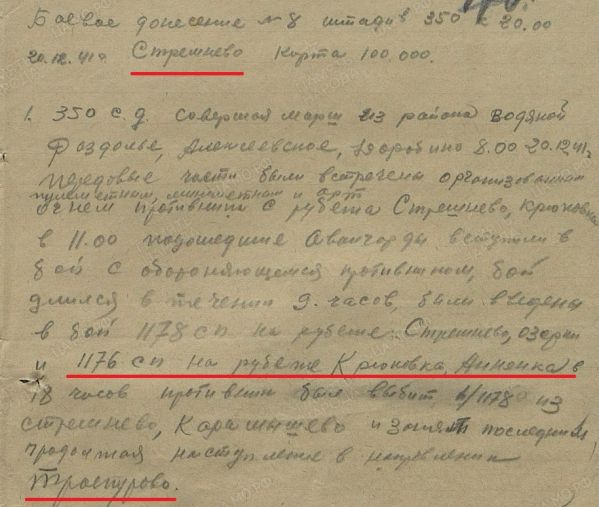 Боевое донесение №8 штадив 350 к 20.00
20.12.41г. Стрешнево Карта 100.000.
1. 350 с.д. совершая марш из района Водяной
Раздолье, Алексеевское, 8.00 20.12.41г
передовые части были встречены организованным
пулеметном, минометном и арт
огнем противника с рубежа Стрешнево, Крюковка
в 11.00 подошедшие Авангарды вступили в
бой с обороняющемся противником, бой
длился в течении 9. часов, были введены
в бой 1178 сп на рубеже Стрешнево, озерки
и 1176 сп на рубеже Крюковка, Анненка в
18 часов противник был выбит из
стрешнево, Карашышево и занят последний,
продолжая наступление в направлении
Троснурово.